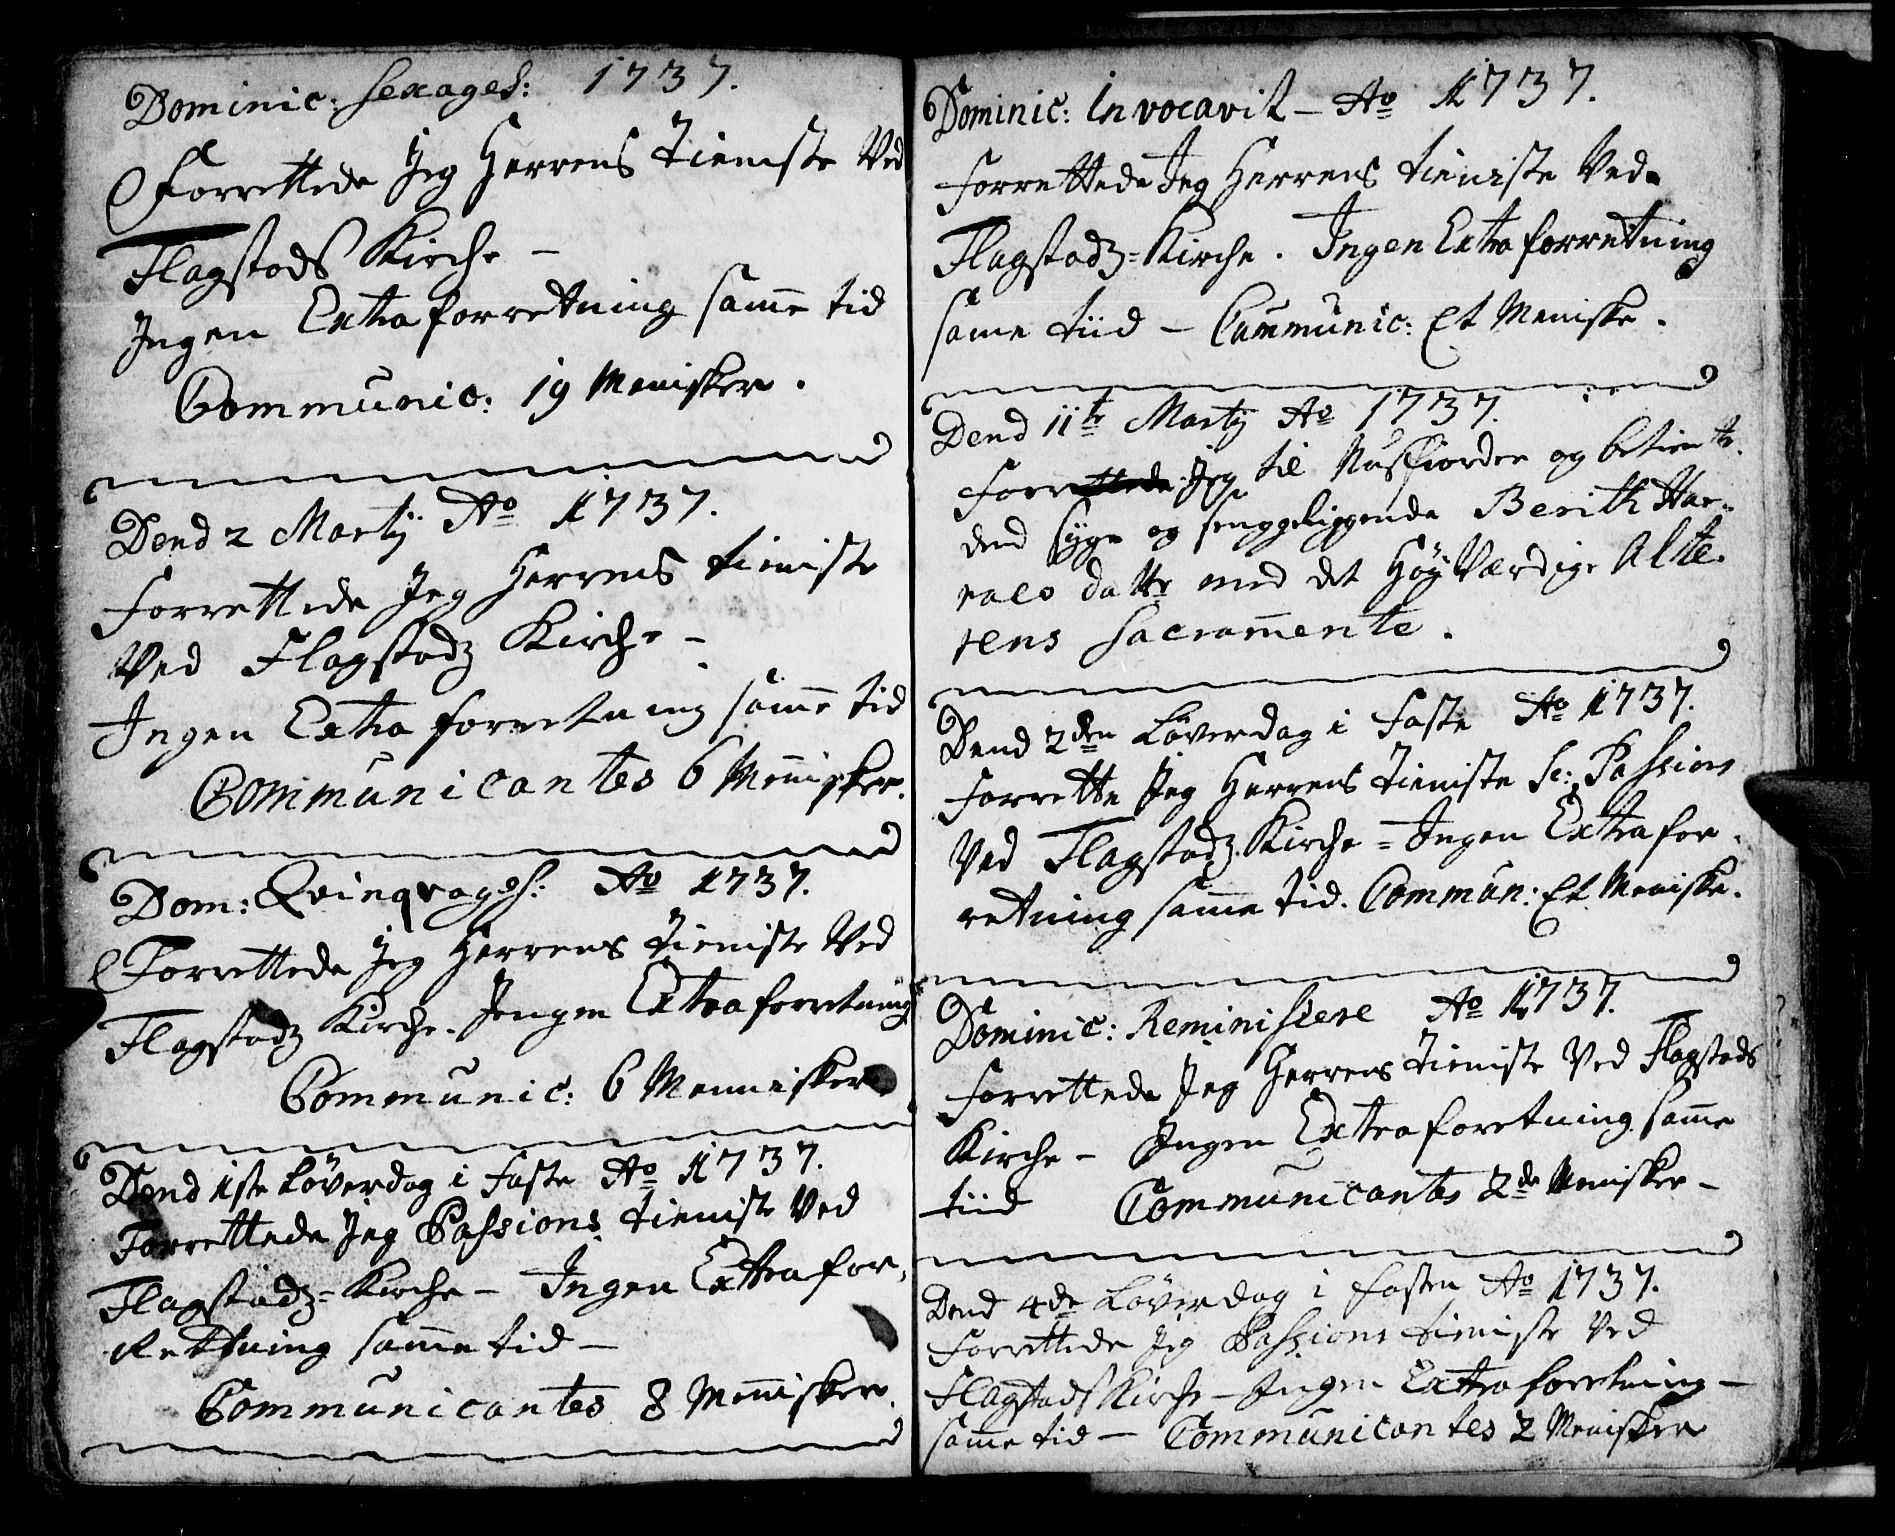 Dominic: Sexages: 1737.
Forrettede Jeg Herrens Tieniste Ved
Flagstads Kirche –
Ingen Extra forretning samme tid
Communic: 19 Menisker.
Dend 2 Martij Ao 1737.
Forrettede Jeg Herrens tieniste
Ved Flagstadz Kirche –
Ingen Extra forretning samme tid
Communicantes 6 Mennisker.
Dom: Qvinqvages: Ao 1737.
Forrettede Jeg Herrens Tieniste Ved
Flagstadz Kirche. Jngen Extra forretning
Communic: 6 Mennisker
Dend 1ste Löverdag i Faste Ao 1737.
Forrettede Jeg Passions tieniste Ved
Flagstadz-Kirche – Ingen Extra for-
Rettning samme tid –
Communicantes 8 Mennisker.
Dominic: Invocavit – Ao 1737.
Forrettede Jeg Herrens tieniste Ved
Flagstadz-Kirche. Ingen Extra forretning
same tiid – Communic: Et Meniske.
Dend 11te Martij Ao 1737.
Forrettede Jeg til Nusfiorden og betiente
dend syge og senggeliggende Berith Har-
rals datter med det HøyVærdige Alte-
rens Sacramente.
Dend 2den Löverdag i Faste Ao 1737.
Forrette Jeg Herrens Tieniste Sc: Passions
Ved Flagstadz Kirche = Ingen Extra for-
retning samme tid. Commun: Et Meniske.
Dominic: Reminiscere Ao 1737.
Forrettede Jeg Herrens Tieniste Ved Flagstads
Kirche – Ingen Extra foretning samme
tiid Communicantes 2de Menisker –
Dend 4de Löverdag i Fasten Ao 1737.
Forrettede Jeg Passions tieniste Ved
Flagstads Kirche – Ingen Extra forretning –
samme tid – Communicantes 2 Menisker